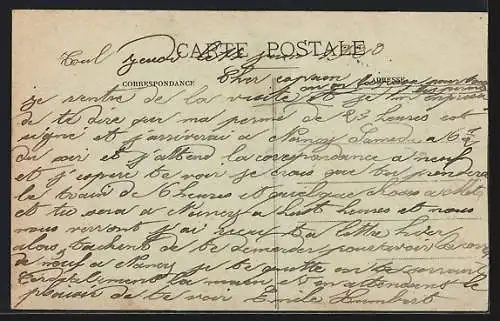 CARTE POSTALE
Toul Jeudi le 1920
CORRESPONDANCE Cher copain ADRESSE
je rentre de la visite et je m'empresse
de te dire que ma perme de 23 heures est
signé et j'arriverai a Nancy Samedi a 6 h
du soir et j'attend la corespondance a neuf
et j'espere te voir je crois que tu prendera
le train de 6 heures et quelque chose a Metz
et tu sera a Nancy a huit heures et nous
nous verront j'ai recut ta lettre hier
alors tachent de te demerder pour avoir
de neuf a Nancy je te quitte en te serrant
Cordialement la main et en attendant le
plaisir de te voir Emile Humbert